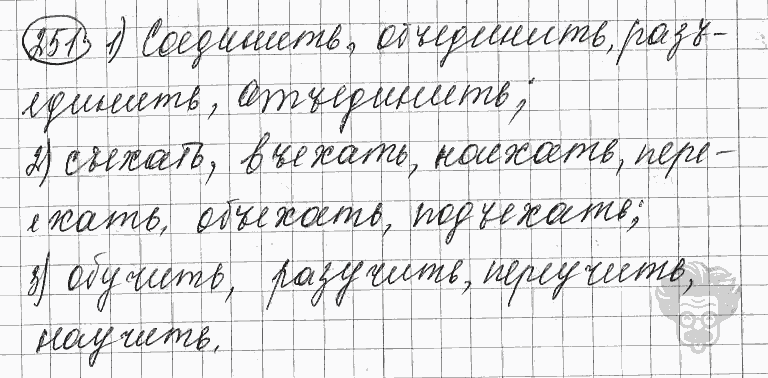 251. 1) Соединить, объединить, разъ-
единить, отъединить;
2) съехать, въехать, наехать, пере-
ехать, объехать, подъехать;
3) обучить, разучить, переучить,
научить.